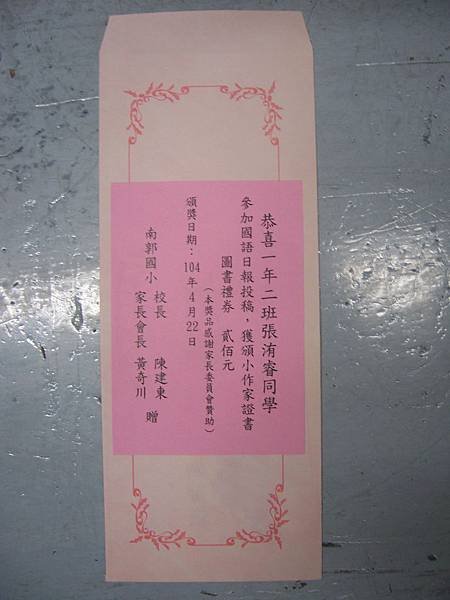 恭喜一年二班張洧睿同學
參加國語日報投稿，獲頒小作家證書
圖書禮券 貳佰元
（本獎品感謝家長委員會贊助）
頒獎日期：104年4月22日
南郭國小 校長 陳建東
家長會長 黃奇川 贈